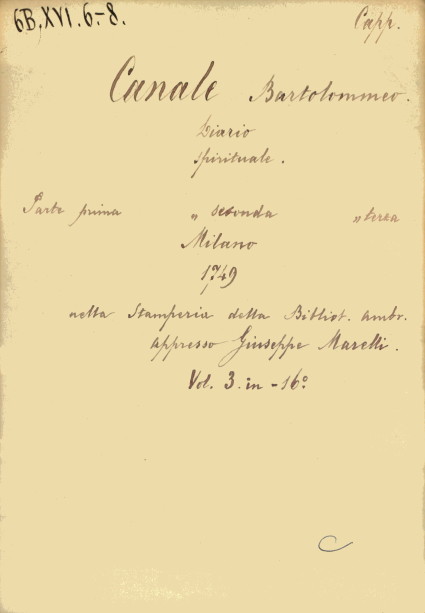 6B.XVI.6.-8.
Capp.
Canale Bartolommeo.
Diario
spirituale.
Parte prima „ seconda „ terza
Milano
1749
nella Stamperia della Bibliot. ambr.
appresso Giuseppe Marelli.
Vol. 3. in-16º